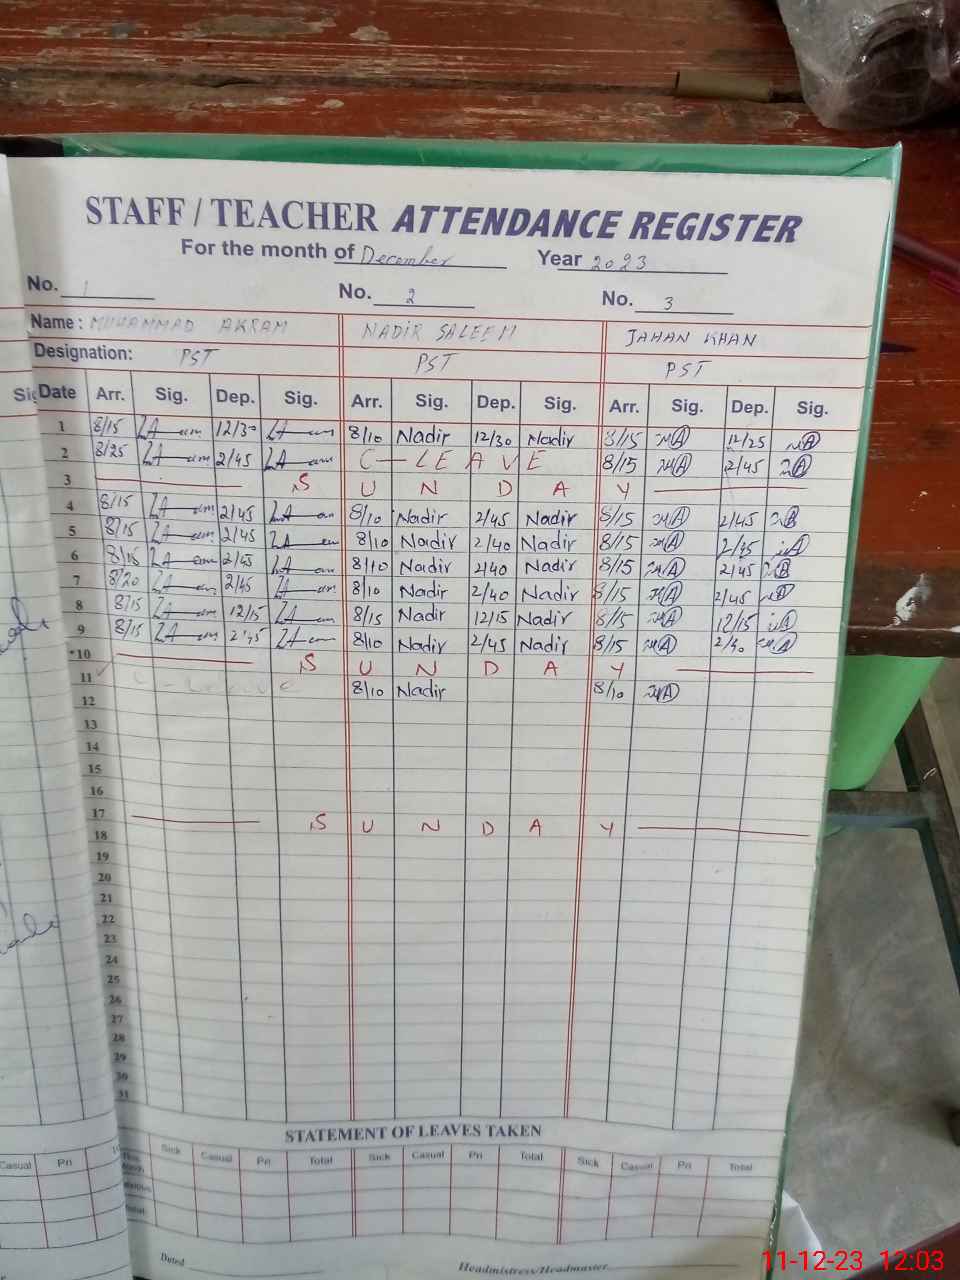 STAFF / TEACHER ATTENDANCE REGISTER
For the month of December Year 2023
No. 1 No. 2 No. 3
Name: MUHAMMAD AKRAM NADIR SALEEM JAHAN KHAN
Designation: PST PST PST
Date Arr. Sig. Dep. Sig. Arr. Sig. Dep. Sig. Arr. Sig. Dep. Sig.
1 8/15 12/30 8/10 Nadir 12/30 Nadir 8/15 12/25
2 8/25 2/45 C-LEAVE 8/15 2/45
3 S U N D A Y
4 8/15 2/45 8/10 Nadir 2/45 Nadir 8/15 2/45
5 8/15 2/45 8/10 Nadir 2/40 Nadir 8/15
6 2/45 8/10 Nadir 2/40 Nadir 8/15 2/45
7 8/20 2/45 8/10 Nadir 2/40 Nadir 8/15 2/45
8 8/15 12/15 8/15 Nadir 12/15 Nadir 8/15 12/15
9 8/15 2'45 8/10 Nadir 2/45 Nadir 8/15
10 S U N D A Y
11 C-Leave 8/10 Nadir 8/10
12
13
14
15
16
17 S U N D A Y
18
19
20
21
22
23
24
25
26
27
28
29
30
31
STATEMENT OF LEAVES TAKEN
Casual Pri Sick Casual Pri Total Sick Casual Pri Total Sick Casual Pri Total
Dated Headmistress/Headmaster
11-12-23 12:03